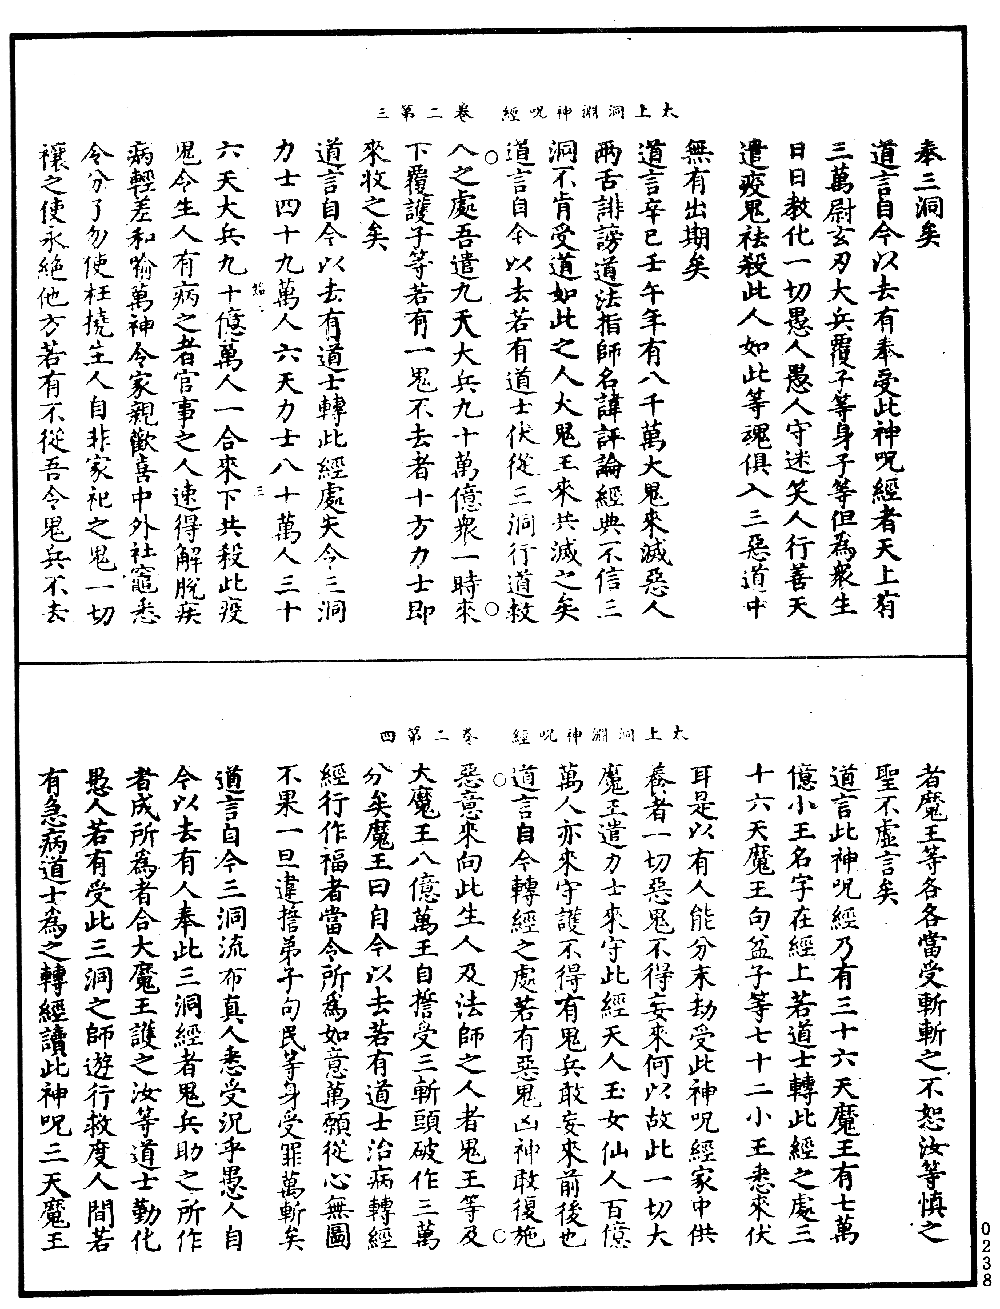 太上洞淵神呪經　卷二第三
奉三洞矣
道言自今以去有奉受此神呪經者天上有
三萬尉玄刃大兵覆子等身子等但爲衆生
日日教化一切愚人愚人守迷笑人行善天
遣疫鬼袪殺此人如此等魂俱入三惡道中
無有出期矣
道言辛巳壬午年有八千萬大鬼來滅惡人
兩舌誹謗道法指師名諱評論經典不信三
洞不肯受道如此之人大鬼王來共滅之矣
道言自今以去若有道士伏從三洞行道救
人之處吾遣九天大兵九十萬億衆一時來
下覆護子等若有一鬼不去者十方力士即
來收之矣
道言自今以去有道士轉此經處失令三洞
力士四十九萬人六天力士八十萬人三十
六天大兵九十億萬人一合來下共殺此疫
鬼令生人有病之者官事之人速得解脫疾
病輕差和喻萬神令家親歡喜中外社竈悉
令分了勿使枉撓生人自非家祀之鬼一切
禳之使永絕他方若有不從吾令鬼兵不去
太上洞淵神呪經　卷二第四
者魔王等各各當受斬斬之不恕汝等愼之
聖不虛言矣
道言此神呪經乃有三十六天魔王有七萬
億小王名字在經上若道士轉此經之處三
十六天魔王句盆子等七十二小王悉來伏
耳是以有人能分末劫受此神呪經家中供
養者一切惡鬼不得妄來何以故此一切大
魔王遣力士來守此經天人玉女仙人百億
萬人亦來守護不得有鬼兵敢妄來前後也
道言自今轉經之處若有惡鬼凶神敢復施
惡意來向此生人及法師之人者鬼王等及
大魔王八億萬王自擔受三斬頭破作三萬
分矣魔王曰自今以去若有道士治病轉經
經行作福者當令所爲如意萬願從心無圖
不果一旦違擔弟子句民等身受罪萬斬矣
道言自今三洞流布真人悉受況乎愚人自
今以去有人奉此三洞經者鬼兵助之所作
者成所爲者合大魔王護之汝等道士勤化
愚人若有受此三洞之師遊行救度人間若
有急病道士爲之轉經讀此神呪三天魔王
0238